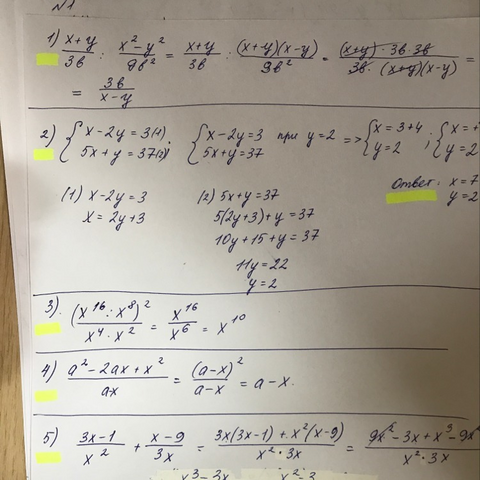 №1
1) (x+y)/3b : (x²-y²)/9b² = (x+y)/3b : (x+y)(x-y)/9b² = (x+y)·3b·3b/3b·(x+y)(x-y) =
= 3b/(x-y)
2) {x-2y=3 (1), {x-2y=3 при y=2 => {x=3+4 ; {x=
{5x+y=37 (2); {5x+y=37 {y=2 {y=2
Ответ: x=7
y=2
(1) x-2y=3 (2) 5x+y=37
x=2y+3 5(2y+3)+y=37
10y+15+y=37
11y=22
y=2
3). (x¹⁶:x⁸)²/x⁴·x² = x¹⁶/x⁶ = x¹⁰
4) (a²-2ax+x²)/ax = (a-x)²/(a-x) = a-x.
5) (3x-1)/x² + (x-9)/3x = (3x(3x-1)+x²(x-9))/x²·3x = (9x²-3x+x³-9x²)/x²·3x